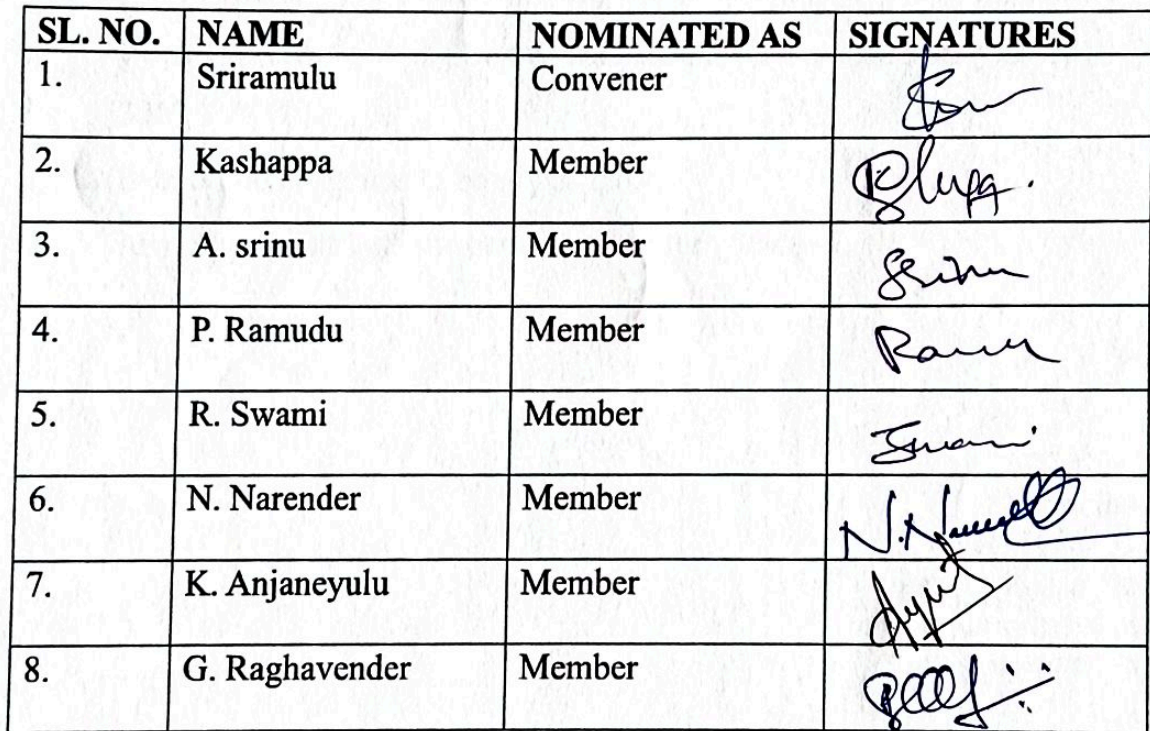 SL. NO. NAME NOMINATED AS SIGNATURES
1. Sriramulu Convener
2. Kashappa Member
3. A. srinu Member Srinu
4. P. Ramudu Member Ramu
5. R. Swami Member Swami
6. N. Narender Member
7. K. Anjaneyulu Member
8. G. Raghavender Member